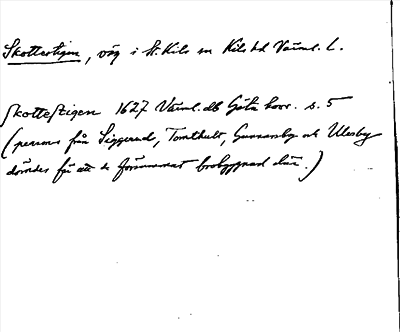 Skottestigen, väg i St. Kils sn Kils hd Värml. L.
Skottestigen 1627 Värml. db Göta hovr. s. 5
(persons från Siggerud, Tomthult, Gunnarsby och Ulvsby
dömdes för att de försummat brobyggnad där.)